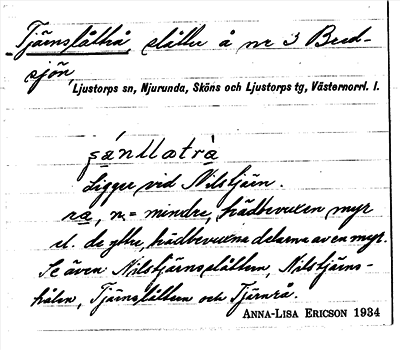 Tjärnslåttrå slåtter å nr 3 Bred-
sjön,
Ljustorps sn, Njurunda, Sköns och Ljustorps tg, Västernorrl. l.
Ligger vid Nilstjärn.
ra, n. = mindre, trädbevuxen myr
el. de yttre, trädbevuxna delarna av en myr.
Se även Nilstjärnsslåtten, Nilstjärns-
hålen, Tjärnslåtten och Tjärnrå.
ANNA-LISA ERICSON 1934